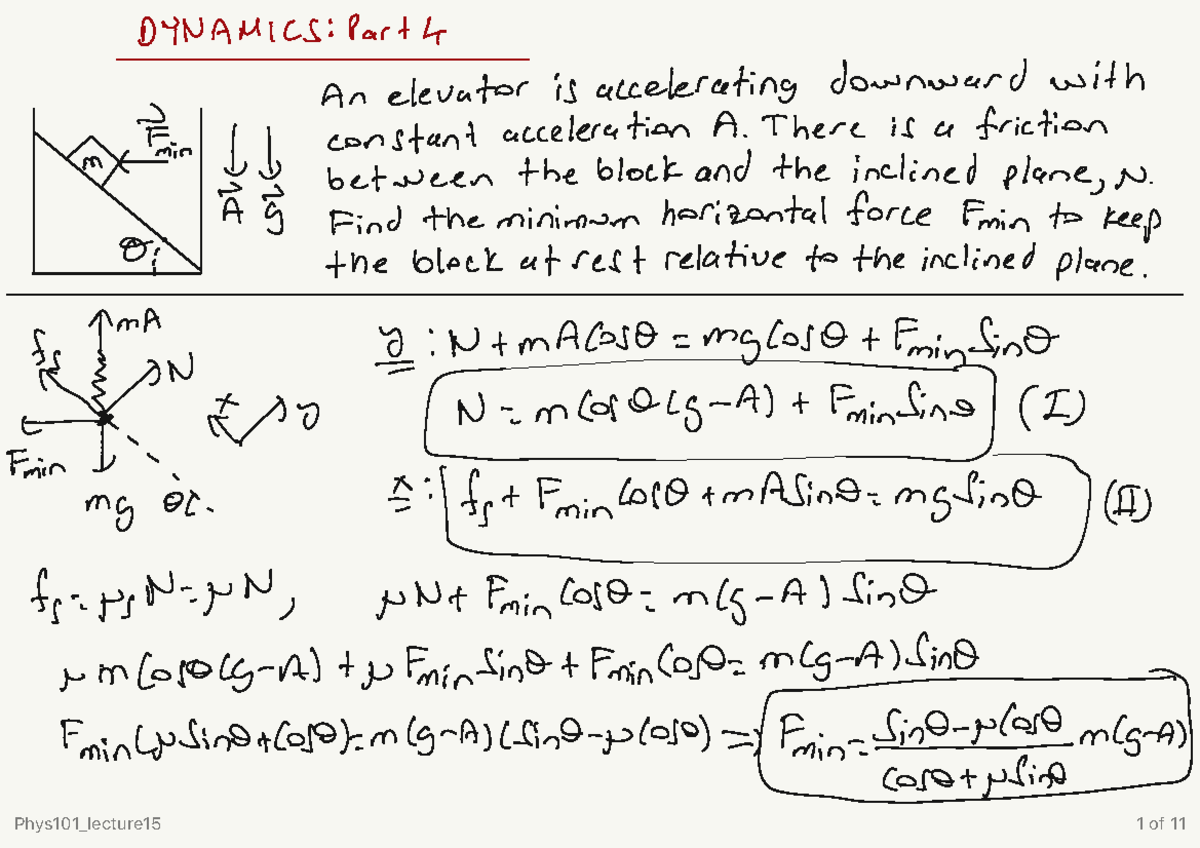 DYNAMICS: Part 4
An elevator is accelerating downward with
constant acceleration A. There is a friction
between the block and the inclined plane, μ.
Find the minimum horizontal force Fmin to keep
the block at rest relative to the inclined plane.
m
Fmin
A g
θ
mA
fs
N
Fmin
mg θ
x y
y : N + mA Cosθ = mg Cosθ + Fmin Sinθ
N = m Cosθ (g-A) + Fmin Sinθ (I)
x : fs + Fmin Cosθ + mA Sinθ = mg Sinθ (II)
fs = μs N = μN, μN + Fmin Cosθ = m(g-A) Sinθ
μ m Cosθ (g-A) + μ Fmin Sinθ + Fmin Cosθ = m(g-A) Sinθ
Fmin (μ Sinθ + Cosθ) = m(g-A) (Sinθ - μ Cosθ) => Fmin = Sinθ - μ Cosθ / Cosθ + μ Sinθ m(g-A)
Phys101_lecture15
1 of 11